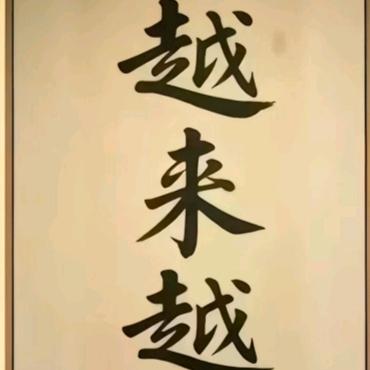 越来越